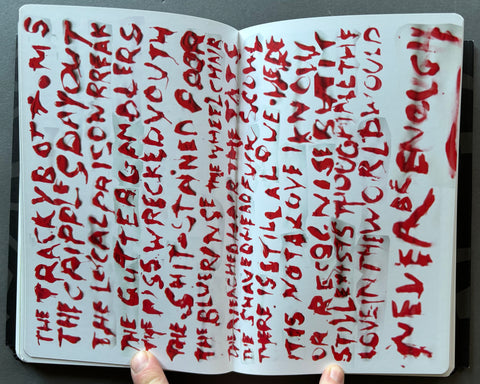 THE TRACKYBOTTOMS
THE CRIPPLES DAY OUT
THE LOCAL PRISON BREAK
THE GUTTER GAMBLERS
THE PISS WRECKED YOUTH
THE SHIT STAINED POOR
THE BLUE RINSE THE WHEELCHAIR
THE THE
THE SHAVED HEAD
THERE IS STILL A LOVE HERE
IT IS NOT A LOVE I KNOW
OR RECOGNISE BUT IT
STILL EXISTS THOUGH ALL THE
LOVE IN THE WORLD WOULD
NEVER BE ENOUGH